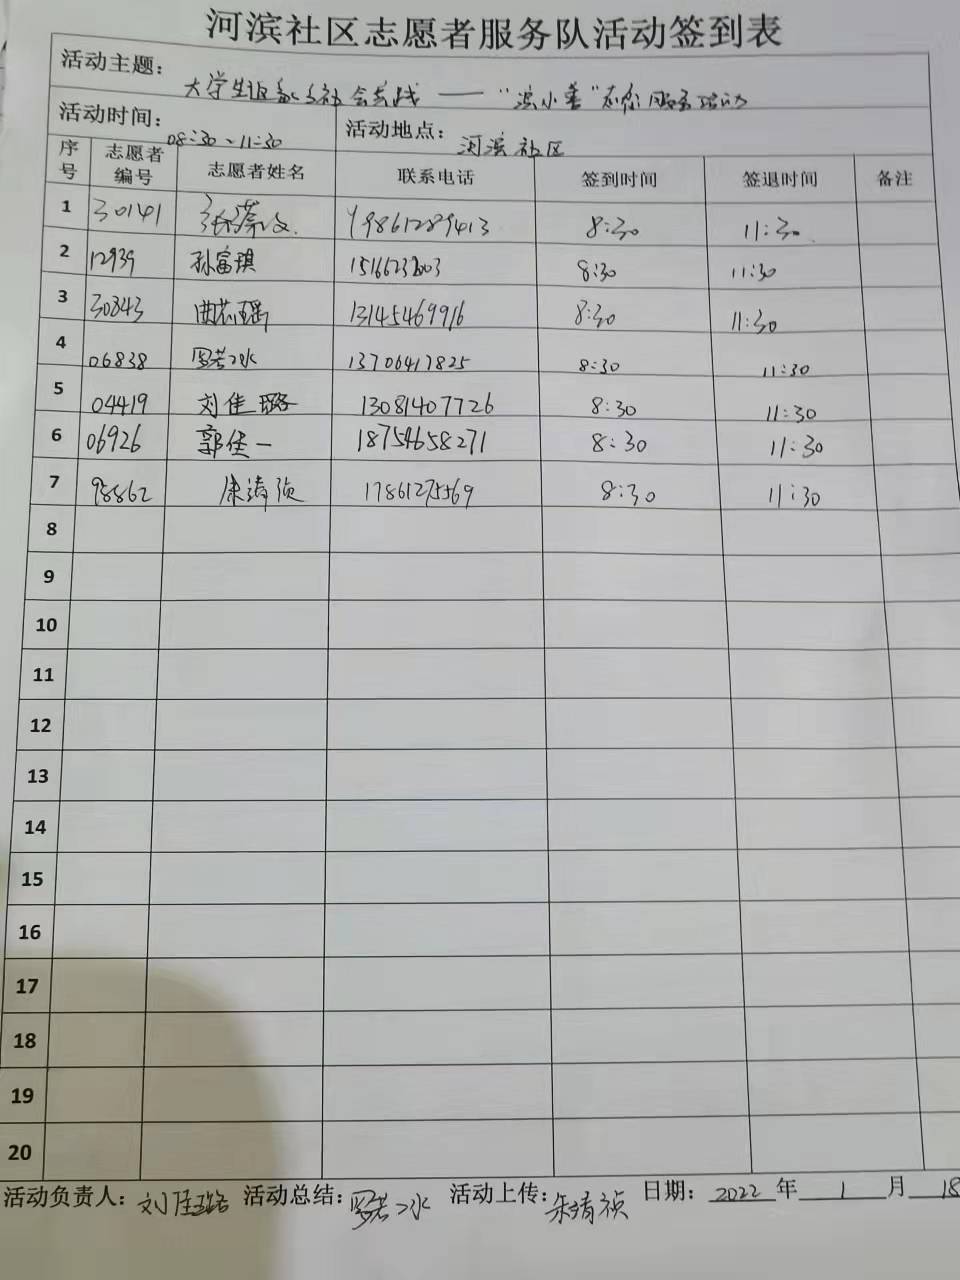 河滨社区志愿者服务队活动签到表
活动主题： 大学生返家乡社会实践 —— "滨小善"志愿服务活动
活动时间： 08:30~11:30 活动地点： 河滨社区
序号 志愿者编号 志愿者姓名 联系电话 签到时间 签退时间 备注
1 30141 19861289413 8:30 11:30
2 12939 孙富琪 8:30 11:30
3 30843 13145469916 8:30 11:30
4 06838 罗若冰 13706417825 8:30 11:30
5 04419 刘佳璐 13081407726 8:30 11:30
6 06926 郭佳一 18754658271 8:30 11:30
7 98862 17861275569 8:30 11:30
8
9
10
11
12
13
14
15
16
17
18
19
20
活动负责人： 刘佳璐 活动总结： 罗若冰 活动上传： 日期： 2022 年 1 月 18